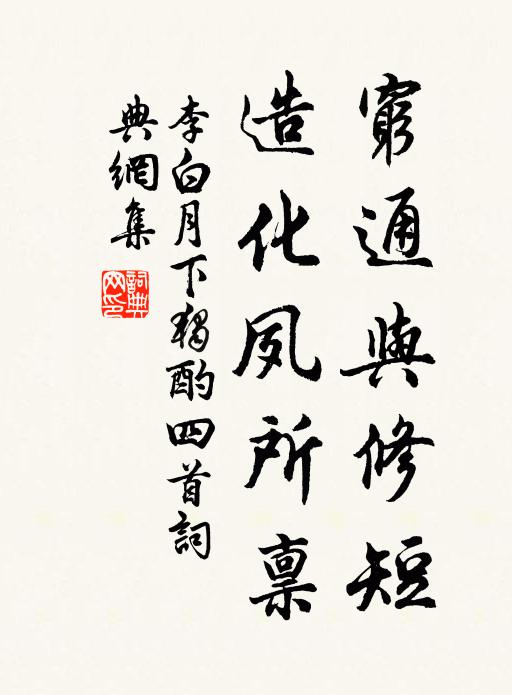 窮通與修短
造化夙所稟
李白月下獨酌四首詞
典網集
詞典
网印